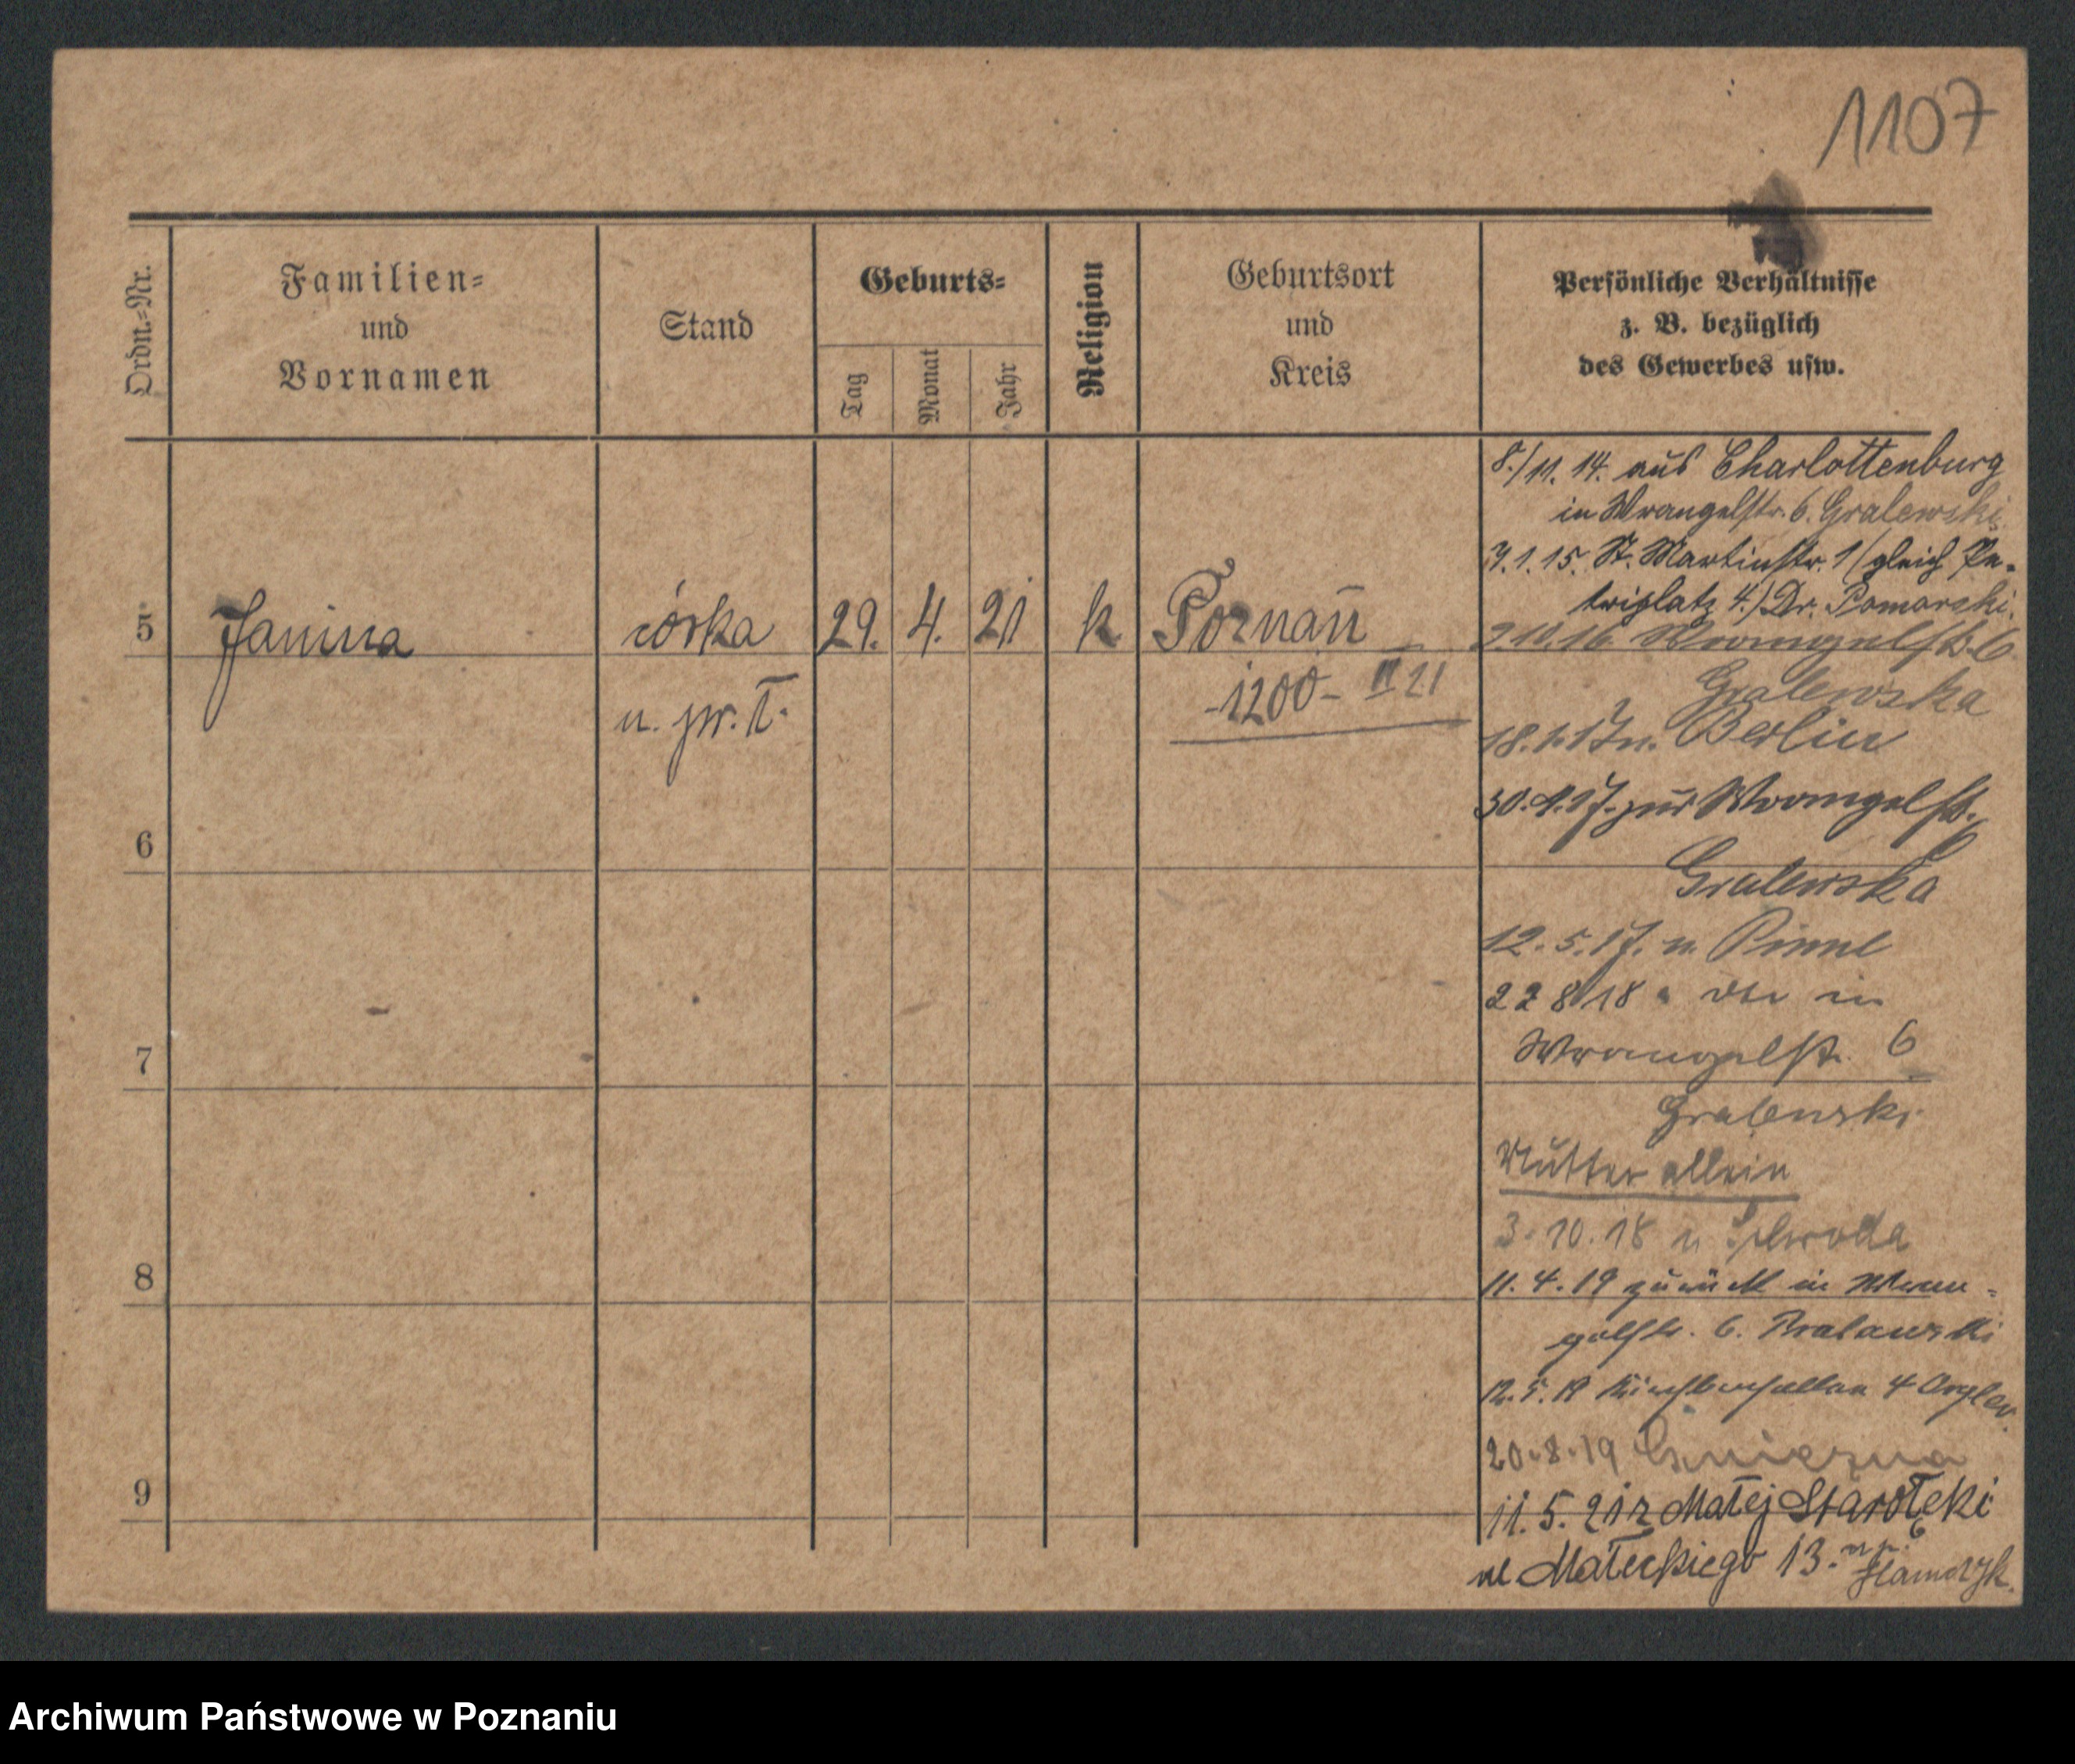 1107
Ordn.-Nr.
Familien-
und
Vornamen
Stand
Geburts-
Tag
Monat
Jahr
Religion
Geburtsort
und
Kreis
Persönliche Verhältnisse
z. B. bezüglich
des Gewerbes usw.
5 Janina córka 29. 4. 21 k Poznań
u. pr. T.
-1200- III 21
6
7
8
9
8./11. 14. aus Charlottenburg
in Wrangelstr. 6. Gralewski
7.1.15. St. Martinstr. 1 (gleich Pe-
triplatz 4.) Dr. Pomorski.
9.10.16 Wrangelstr. 6
Gralewska
18.1.17 n. Berlin
30.4.17. zur Wrangelstr.
Gralewska
12.5.17. n. Pinne
22 8 18 in
Wrangelstr. 6
Gralewski
Mutter allein
3.10.18 n Schroda
11.4.19 zurück in Wran-
gelstr. 6. Gralewski
12.5.19 4
20.8.19 Gniezna
11.5.21 z Małej Starołęki
ul Małeckiego 13.